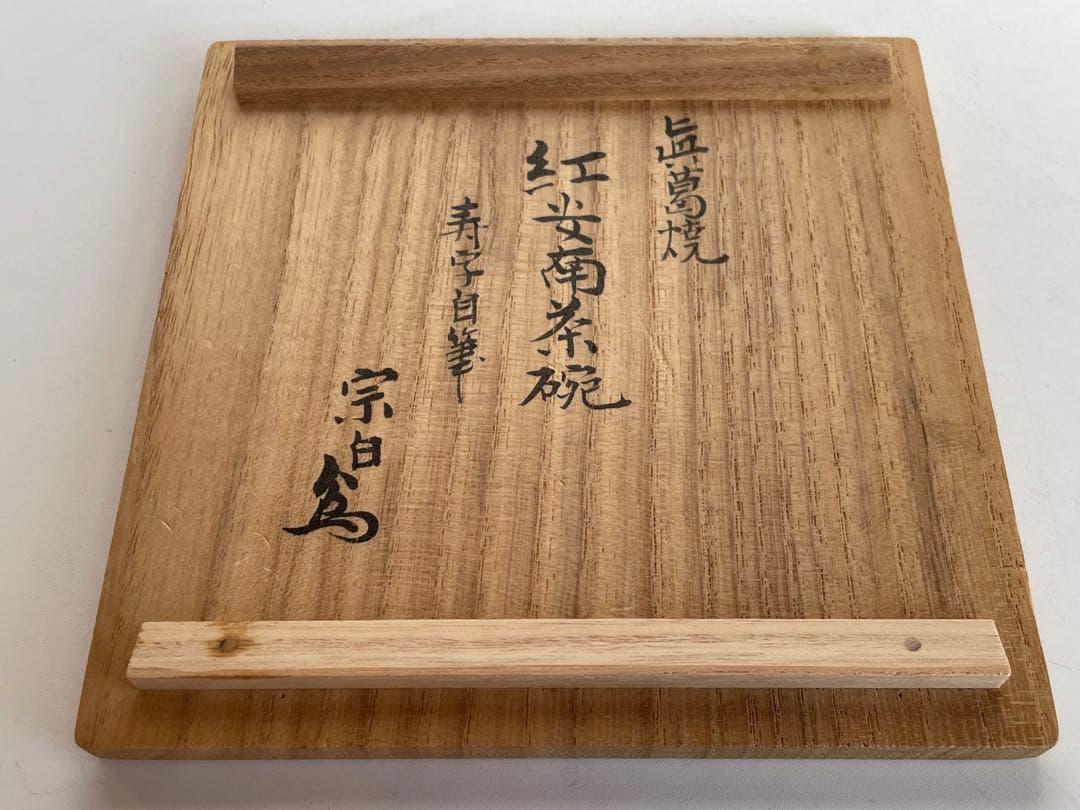 眞葛焼
紅安南茶碗
寿字自筆
宗白